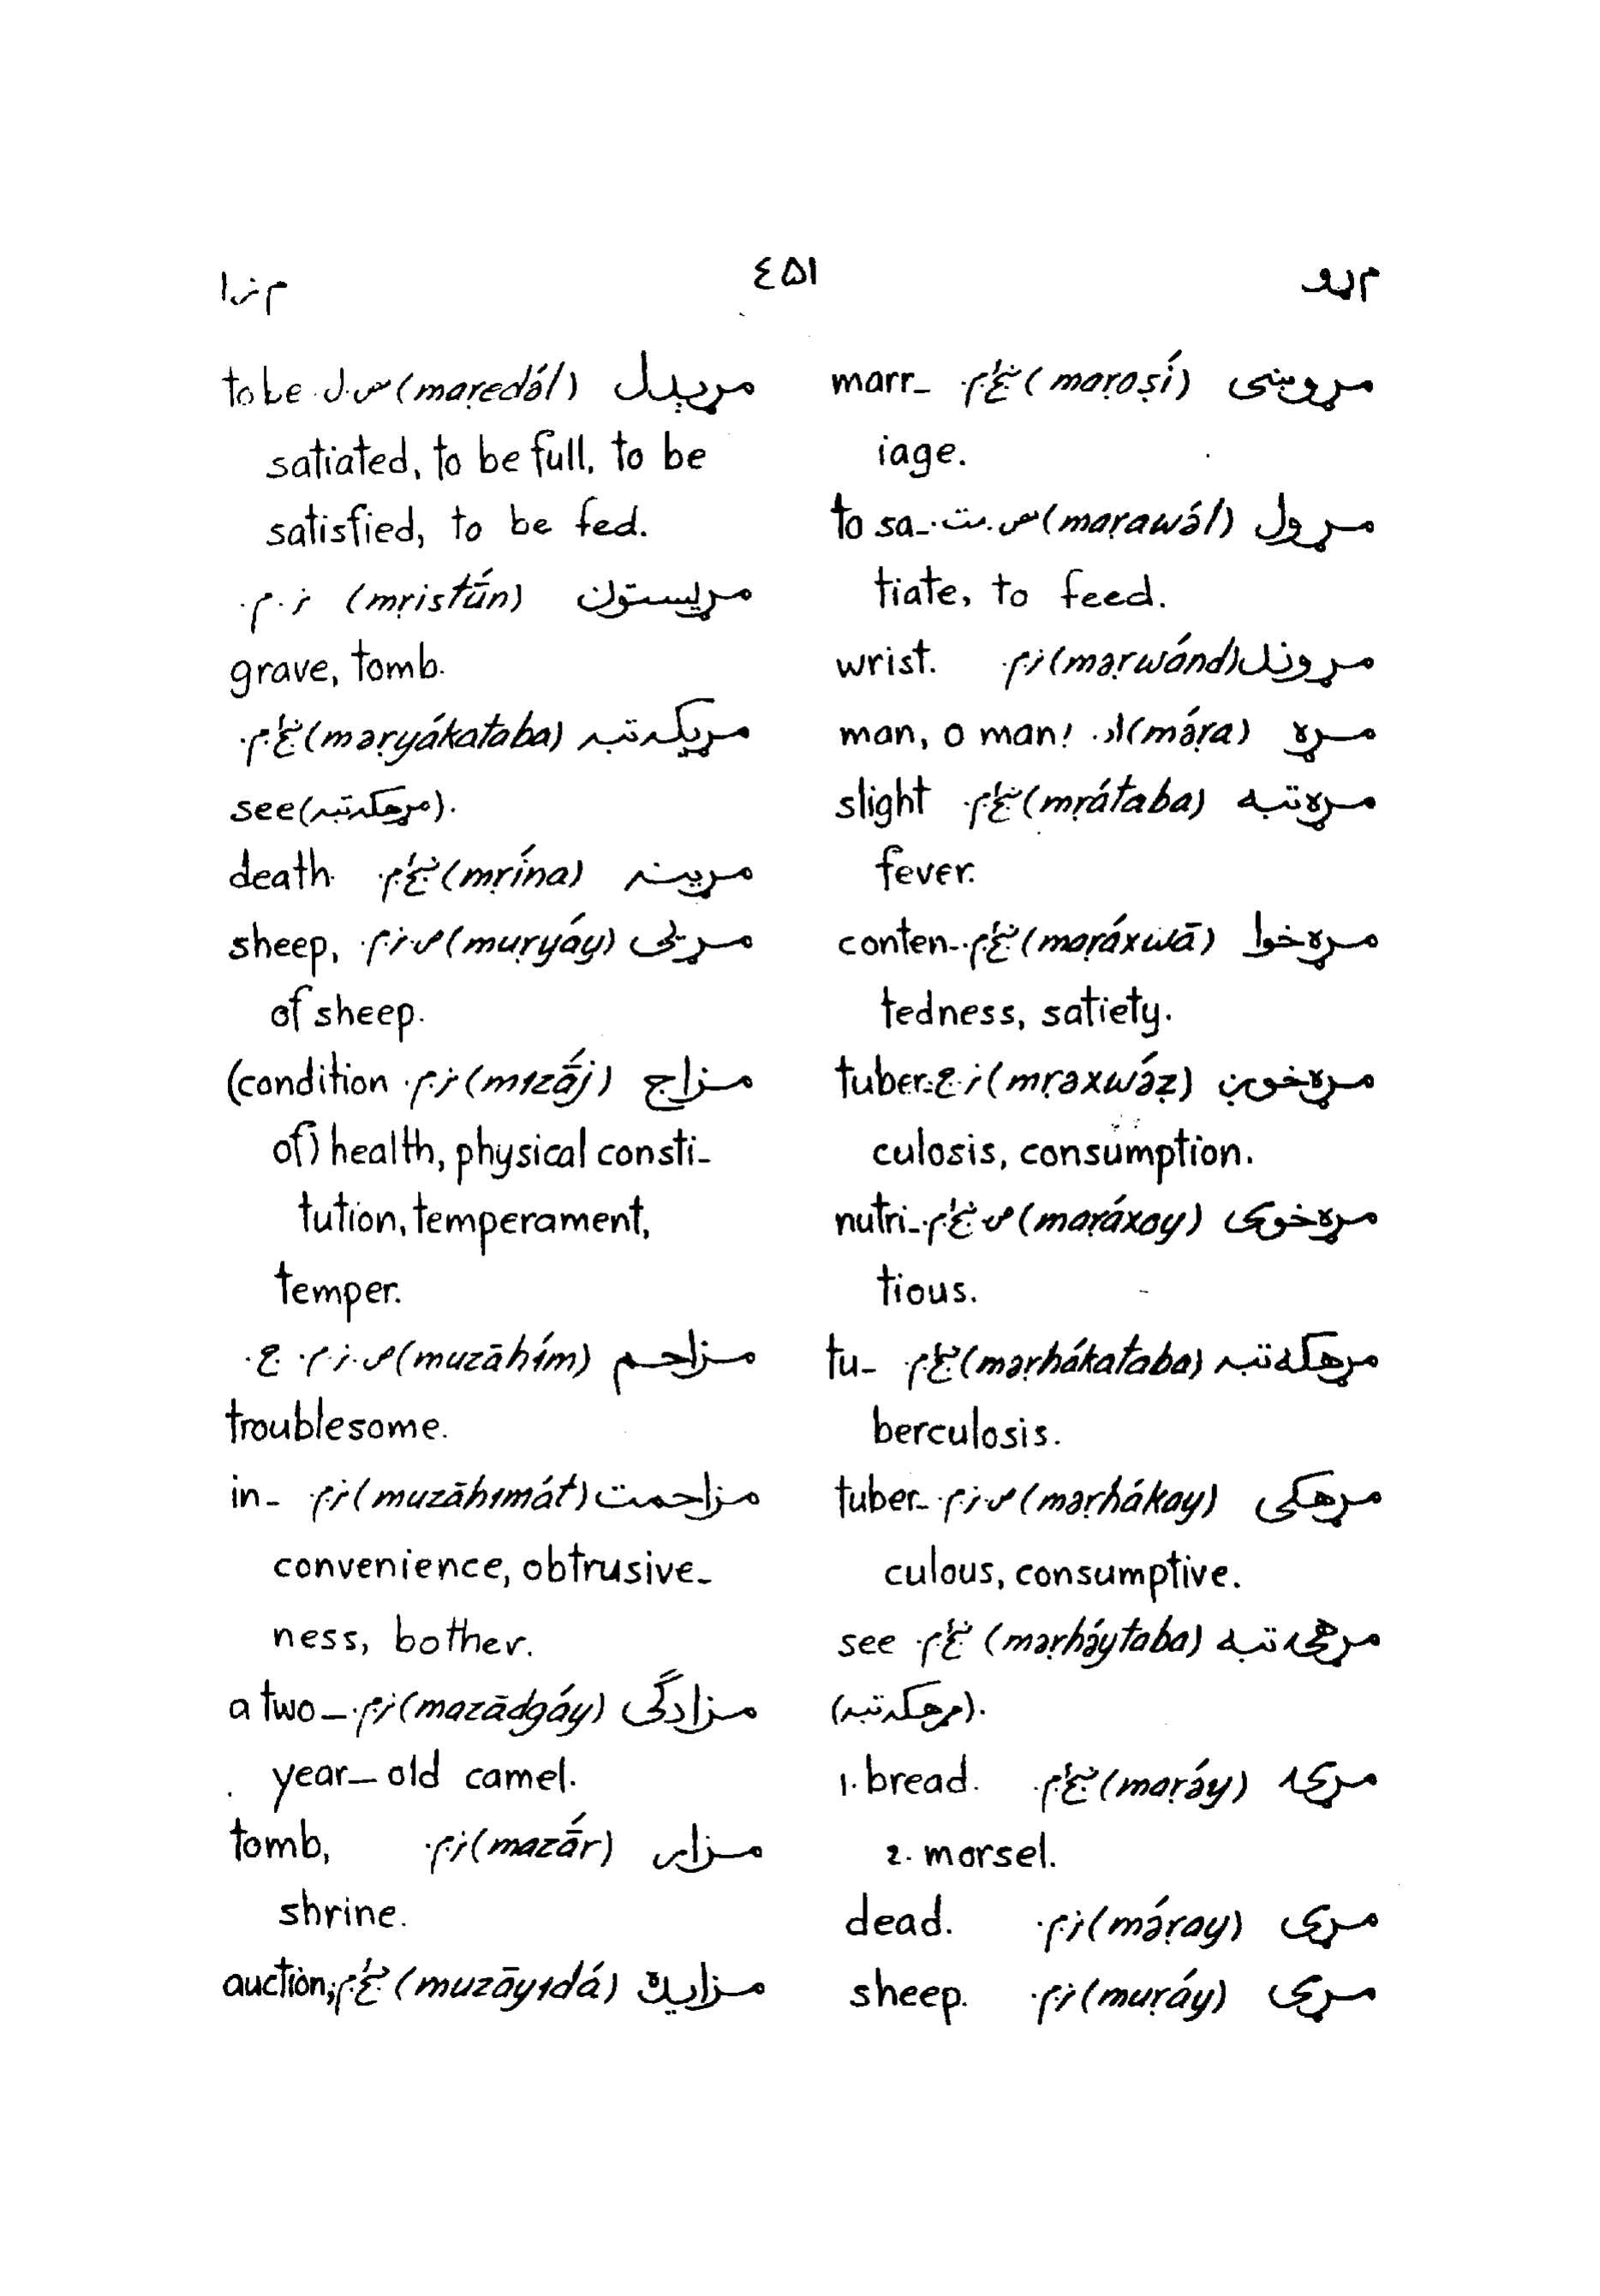 مړو ٤٥١ مزا
مړوښي (maṛoṣí) ښځ.م. marr-
iage.
مړول (maṛawә́l) ص.مت. to sa-
tiate, to feed.
مړوند (mәṛwánd) نر.م. wrist.
مړه (mә́ṛa) اد. man, o man!
مړه تبه (mṛátaba) ښځ.م. slight
fever.
مړه خوا (maṛáxwā) ښځ.م. conten-
tedness, satiety.
مړه خوږ (mṛәxwә́ẓ) نر.ج. tuber-
culosis, consumption.
مړه خوی (maṛáxoy) ص.ښځ.م. nutri-
tious.
مړهکه تبه (mәṛhákataba) ښځ.م. tu-
berculosis.
مړهکی (mәṛhákay) ص.نر.م. tuber-
culous, consumptive.
مړهۍ تبه (mәṛhә́ytaba) ښځ.م. see
(مړهکه تبه).
مړۍ (maṛә́y) ښځ.م. 1. bread.
2. morsel.
مړی (mә́ṛay) نر.م. dead.
مړی (muṛáy) نر.م. sheep.
مړېدل (maṛedә́l) ص.ل. to be
satiated, to be full, to be
satisfied, to be fed.
مړیستون (mṛistū́n) نر.م.
grave, tomb.
مړیکه تبه (mәṛyákataba) ښځ.م.
see (مړهکه تبه).
مړینه (mṛína) ښځ.م. death
مړیی (muṛyáy) ص.نر.م. sheep,
of sheep.
مزاج (mızā́j) نر.م. (condition
of) health, physical consti-
tution, temperament,
temper.
مزاحم (muzāhím) ص.نر.م. ج.
troublesome.
مزاحمت (muzāhımát) نر.م. in-
convenience, obtrusive-
ness, bother.
مزادگی (mazādgáy) نر.م. a two-
year-old camel.
مزار (mazā́r) نر.م. tomb,
shrine.
مزایده (muzāyıdá) ښځ.م. auction;